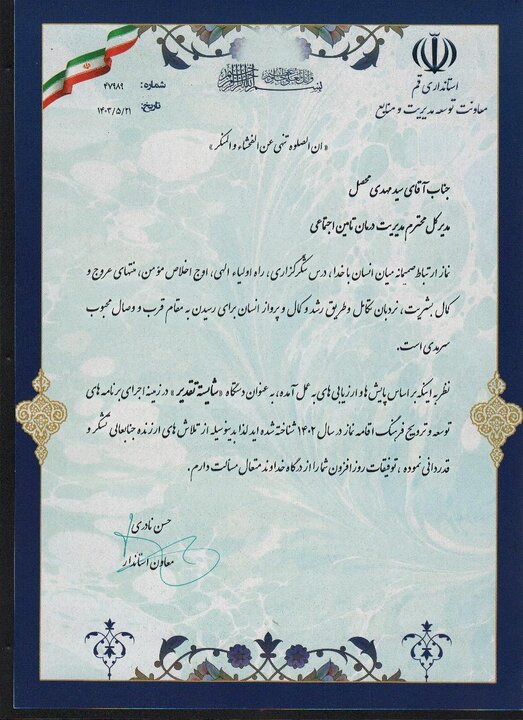 بسم الله الرحمن الرحیم
استانداری قم
معاونت توسعه مدیریت و منابع
شماره: ۴۷۹۸۹
تاریخ: ۱۴۰۳/۵/۲۱
«ان الصلوه تنهی عن الفحشاء و المنکر»
جناب آقای سید مهدی محصل
مدیر کل محترم مدیریت درمان تامین اجتماعی
نماز ارتباط صمیمانه میان انسان با خدا، درس شکرگزاری، راه اولیاء الهی، اوج اخلاص مؤمن، منتهای عروج و
کمال بشریت، نردبان تکامل و طریق رشد و کمال و پرواز انسان برای رسیدن به مقام قرب و وصال محبوب
سرمدی است.
نظر به اینکه بر اساس پایش ها و ارزیابی های به عمل آمده، به عنوان دستگاه «شایسته تقدیر» در زمینه اجرای برنامه های
توسعه و ترویج فرهنگ اقامه نماز در سال ۱۴۰۲ شناخته شده اید لذا بدینوسیله از تلاش های ارزنده جنابعالی تشکر و
قدردانی نموده، توفیقات روزافزون شما را از درگاه خداوند متعال مسألت دارم.
حسن نادری
معاون استاندار